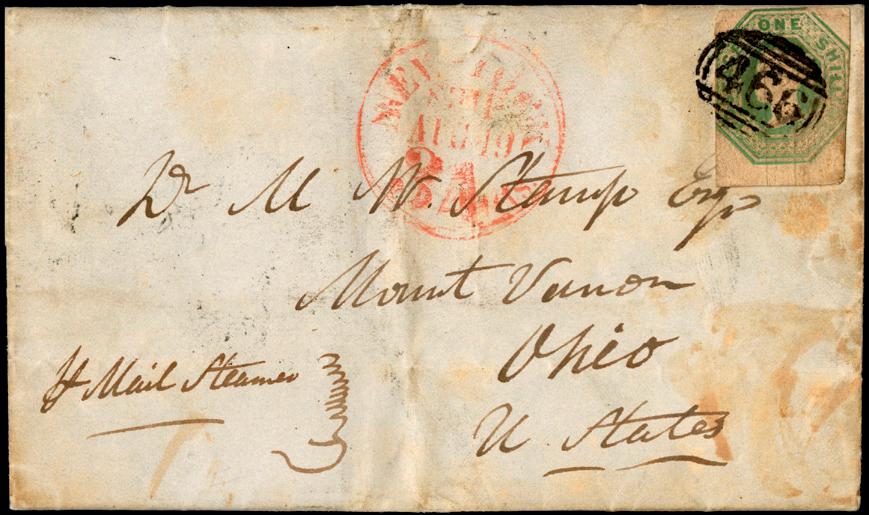 ONE SHILL
466
NEW
AUG 19
24
Dr M W Stamp Esqr
Mount Vernon
Ohio
U. States
pr Mail Steamer